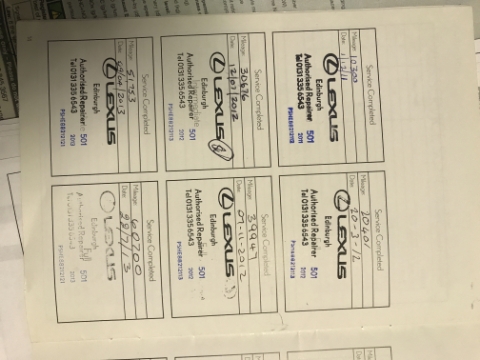 Service Completed
Mileage: 10300
Date:
LEXUS
Edinburgh
Authorised Repairer 501
Tel 0131 335 6543 2011
Service Completed
Mileage: 20401
Date: 20-3-12
LEXUS
Edinburgh
Authorised Repairer 501
Tel 0131 335 6543 2012
Service Completed
Mileage: 30676
Date: 12/07/2012
LEXUS
Edinburgh
Authorised Repairer 501
Tel 0131 335 6543 2012
Service Completed
Mileage: 39947
Date: 2012
LEXUS
Edinburgh
Authorised Repairer 501
Tel 0131 335 6543 2012
Service Completed
Mileage: 51953
Date: 2013
LEXUS
Edinburgh
Authorised Repairer 501
Tel 0131 335 6543 2012
Service Completed
Mileage: 60700
Date: 28/7/13
LEXUS
Edinburgh
Authorised 501
2012